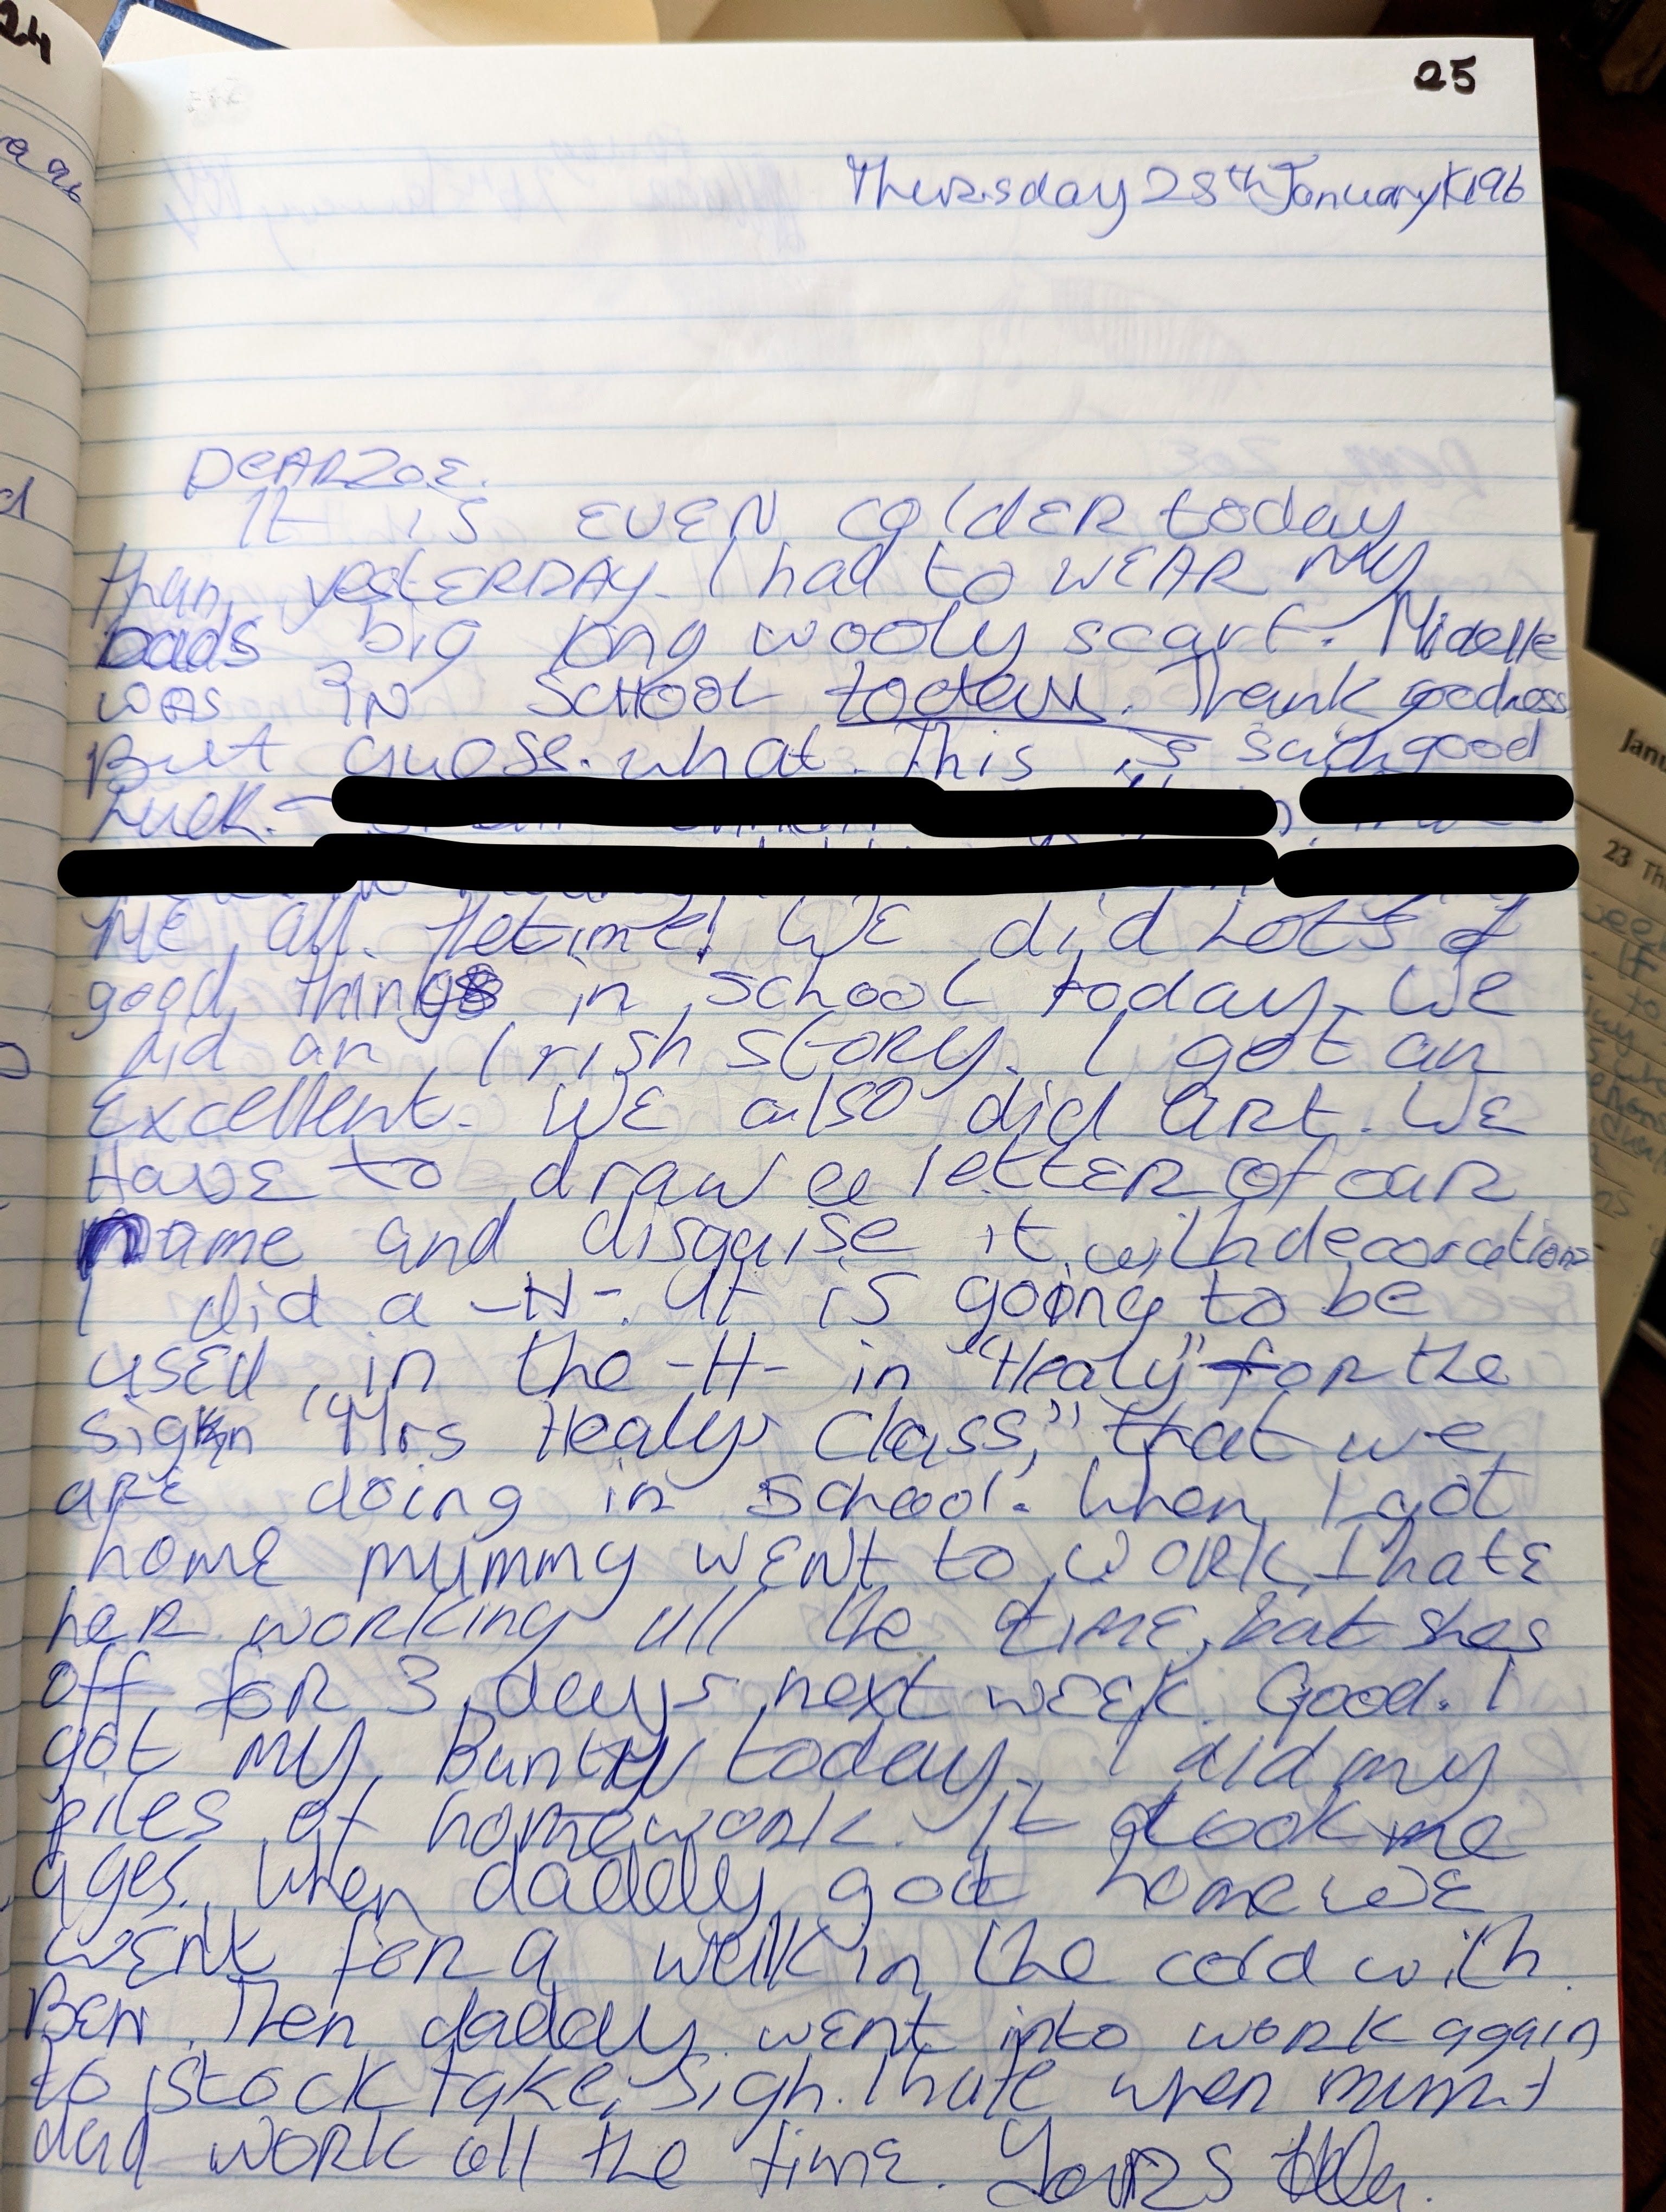 24
25
Thursday 25th January 1996
DEAR ZOE.
It is EVEN COlDER today
than yestERDAY. I had to WEAR MY
Dads big long wooly scarf. Michelle
was IN SCHOOL today. Thank goodness
But guess what. This is such good
Luck. -
ME all the time! WE did LOTS of
good things in school today. We
did an Irish story. I got an
Excellent. WE also did ART. WE
HavE to draw a lettER Of ouR
name and disguise it with decorations
I did a -H-. It is going to be
usEd in the -H- in "Healy" foR the
sign "Mrs Healys Class," that we
arE doing in School. When I got
homE mummy wENt to woRk. I hatE
heR woRking all the timE, but shes
off foR 3 days next wEEk. Good. I
got my Bunty today. I did my
piles of homEwoRk. It took me
ages. When daddy got home WE
wENt foR a walk in the cold with
Ben. Then daddy wEnt into woRk again
to stock take. Sigh. I hate when mum +
dad woRk all the time. YouRs
Janu
23 Th